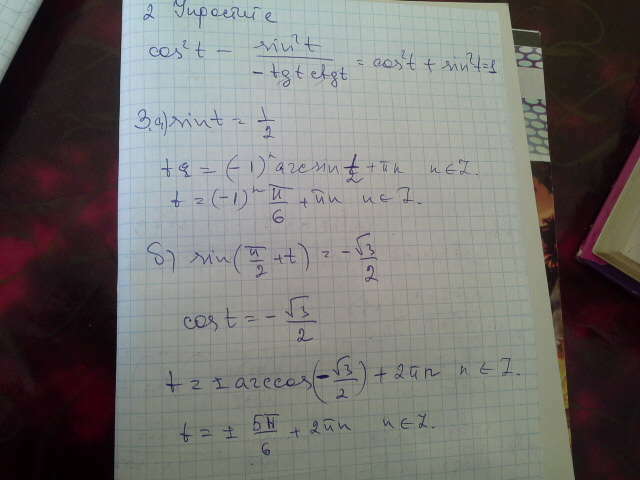 2 Упростите
cos²t - sin²t / -tgt ctgt = cos²t + sin²t = 1
3.а) sint = 1/2
t = (-1)ⁿ arcsin 1/2 + πn n ∈ Z.
t = (-1)ⁿ π/6 + πn n ∈ Z.
б) sin(π/2 + t) = -√3/2
cost = -√3/2
t = ± arccos(-√3/2) + 2πn n ∈ Z.
t = ± 5π/6 + 2πn n ∈ Z.